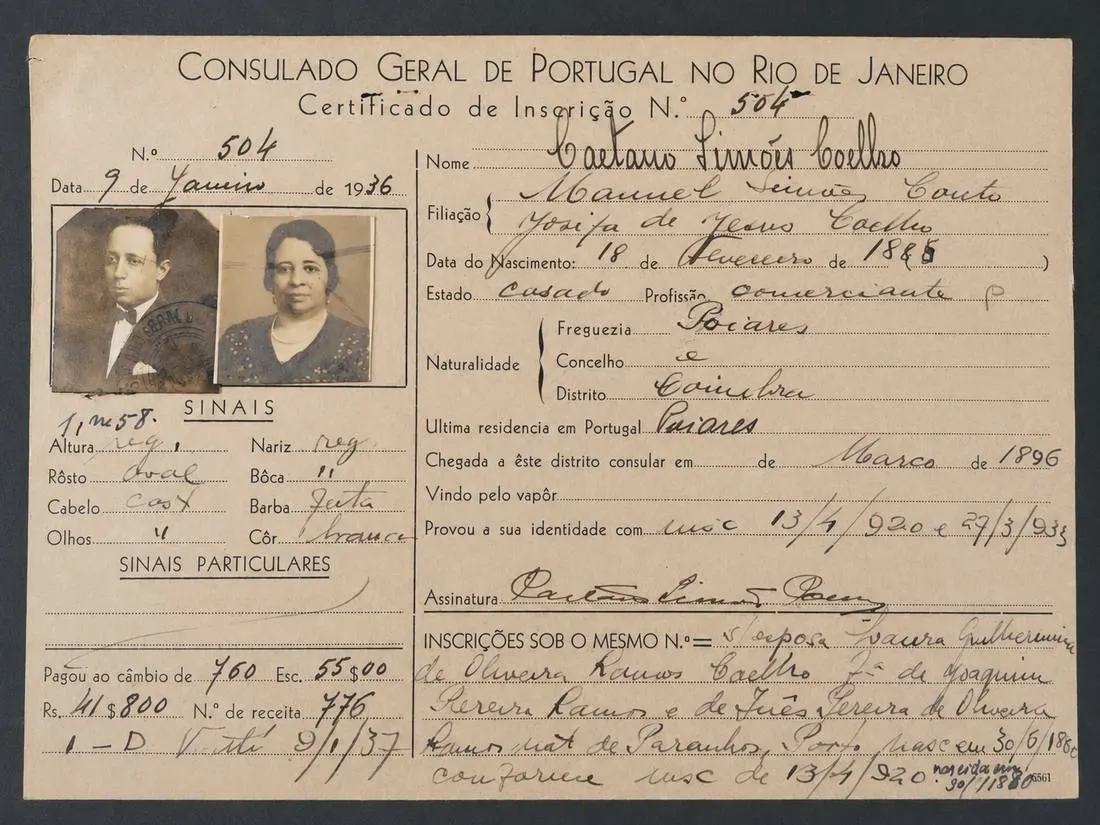 CONSULADO GERAL DE PORTUGAL NO RIO DE JANEIRO
Certificado de Inscrição N.º 504
N.º 504
Data 9 de Janeiro de 1936
SINAIS
1,m58.
Altura reg. Nariz reg
Rôsto oval Bôca "
Cabelo cast Barba feita
Olhos " Côr branca
SINAIS PARTICULARES
Pagou ao câmbio de 760 Esc. 55$00
Rs. 41$800 N.º de receita 776
1-D 9/1/37
Nome Caetano Simões Coelho
Filiação { Manuel Simões Couto
Josifa de Jesus Coelho
Data do Nascimento: 18 de Fevereiro de 188 ( )
Estado casado Profissão comerciante
Naturalidade { Freguezia Poiares
Concelho e
Distrito Coimbra
Ultima residencia em Portugal Poiares
Chegada a êste distrito consular em de Março de 1896
Vindo pelo vapôr
Provou a sua identidade com insc 13/4/920 e 29/3/933
Assinatura Caetano Simões
INSCRIÇÕES SOB O MESMO N.º = s/esposa Guilhermina
de Oliveira Ramos Coelho Fª de Joaquim
Pereira Ramos e de Inês Pereira de Oliveira
Ramos nat de Paranhos, Porto nasc em 30/6/188
conforme insc de 13/4/920. nascida em
30/ /1880
6561